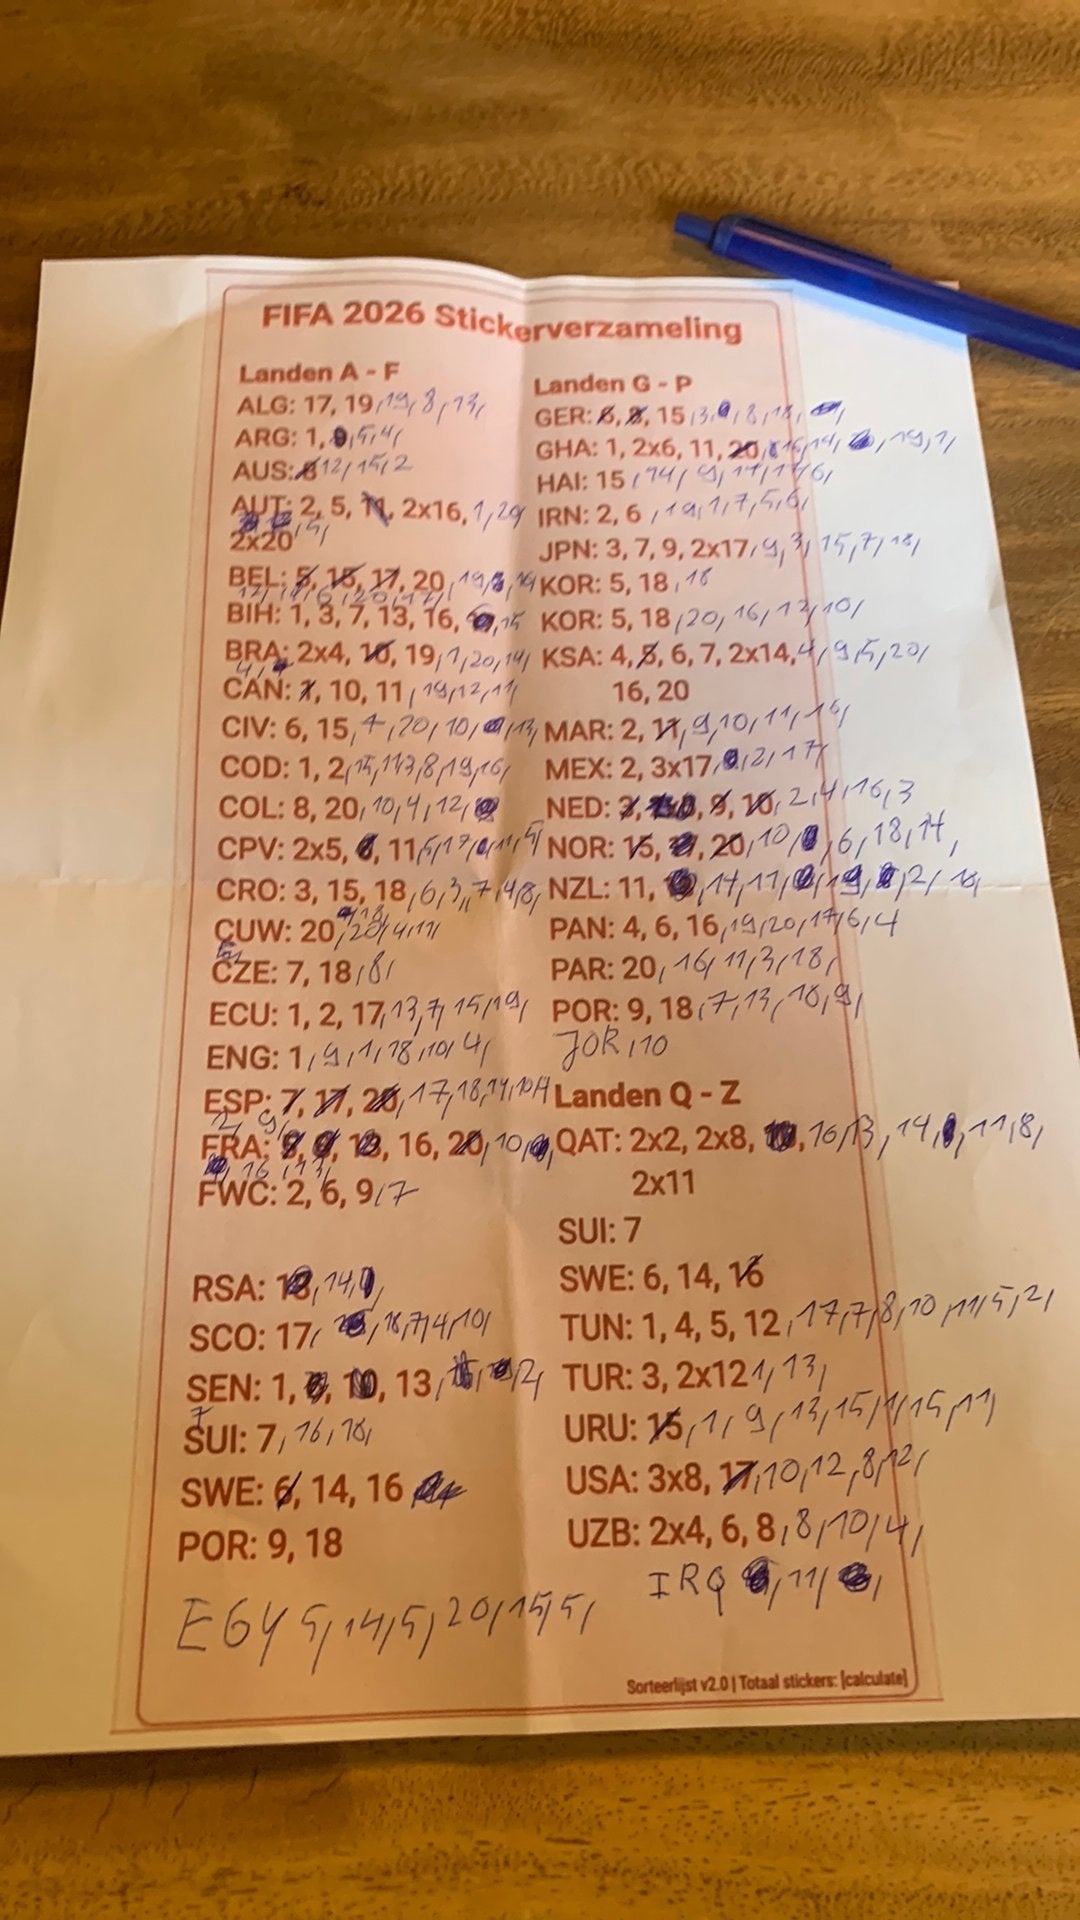 FIFA 2026 Stickerverzameling
Landen A - F
ALG: 17, 19, 19, 8, 13,
ARG: 1, 5, 4,
AUS: 12, 15, 2
AUT: 2, 5, 11, 2x16, 1, 20
2x20 5,
BEL: 5, 15, 17, 20, 19,
BIH: 1, 3, 7, 13, 16, 15
BRA: 2x4, 10, 19, 1, 20, 14,
4,
CAN: 1, 10, 11, 19, 12, 11,
CIV: 6, 15, 20, 10, 13,
COD: 1, 2, 15, 8, 19, 16,
COL: 8, 20, 10, 4, 12,
CPV: 2x5, 11, 5, 17, 11, 5,
CRO: 3, 15, 18, 6, 3, 7, 4, 8,
CUW: 20, 20, 4, 11,
CZE: 7, 18, 8,
ECU: 1, 2, 17, 13, 7, 15, 19,
ENG: 1, 9, 1, 18, 10, 4,
ESP: 7, 17, 20, 17, 18, 14, 10,
2, 9,
FRA: 16, 20, 10,
16, 13,
FWC: 2, 6, 9, 7
RSA: 14,
SCO: 17, 18, 7, 4, 10,
SEN: 1, 13, 2,
7
SUI: 7, 16, 18,
SWE: 6, 14, 16
POR: 9, 18
EGY 5, 14, 5, 20, 15, 5,
Landen G - P
GER: 6, 8, 15, 3, 8, 18,
GHA: 1, 2x6, 11, 20, 16, 14, 19, 1,
HAI: 15, 14, 9, 11, 6,
IRN: 2, 6, 19, 1, 7, 5, 6,
JPN: 3, 7, 9, 2x17, 9, 3, 15, 7, 18,
KOR: 5, 18, 18
KOR: 5, 18, 20, 16, 12, 10,
KSA: 4, 5, 6, 7, 2x14, 4, 9, 5, 20,
16, 20
MAR: 2, 11, 9, 10, 11,
MEX: 2, 3x17, 2, 17,
NED: 3, 9, 10, 2, 4, 16, 3
NOR: 15, 20, 10, 6, 18, 14,
NZL: 11, 14, 11, 2,
PAN: 4, 6, 16, 19, 20, 17, 6, 4
PAR: 20, 16, 11, 3, 18,
POR: 9, 18, 7, 13, 10, 9,
JOR, 10
Landen Q - Z
QAT: 2x2, 2x8, 16, 13, 14, 11, 8,
2x11
SUI: 7
SWE: 6, 14, 16
TUN: 1, 4, 5, 12, 17, 7, 8, 10, 11, 5, 2,
TUR: 3, 2x12 1, 13,
URU: 15, 1, 9, 13, 15, 1, 15, 11,
USA: 3x8, 17, 10, 12, 8, 12,
UZB: 2x4, 6, 8, 8, 10, 4,
IRQ 11,
Sorteerlijst v2.0 | Totaal stickers: [calculate]